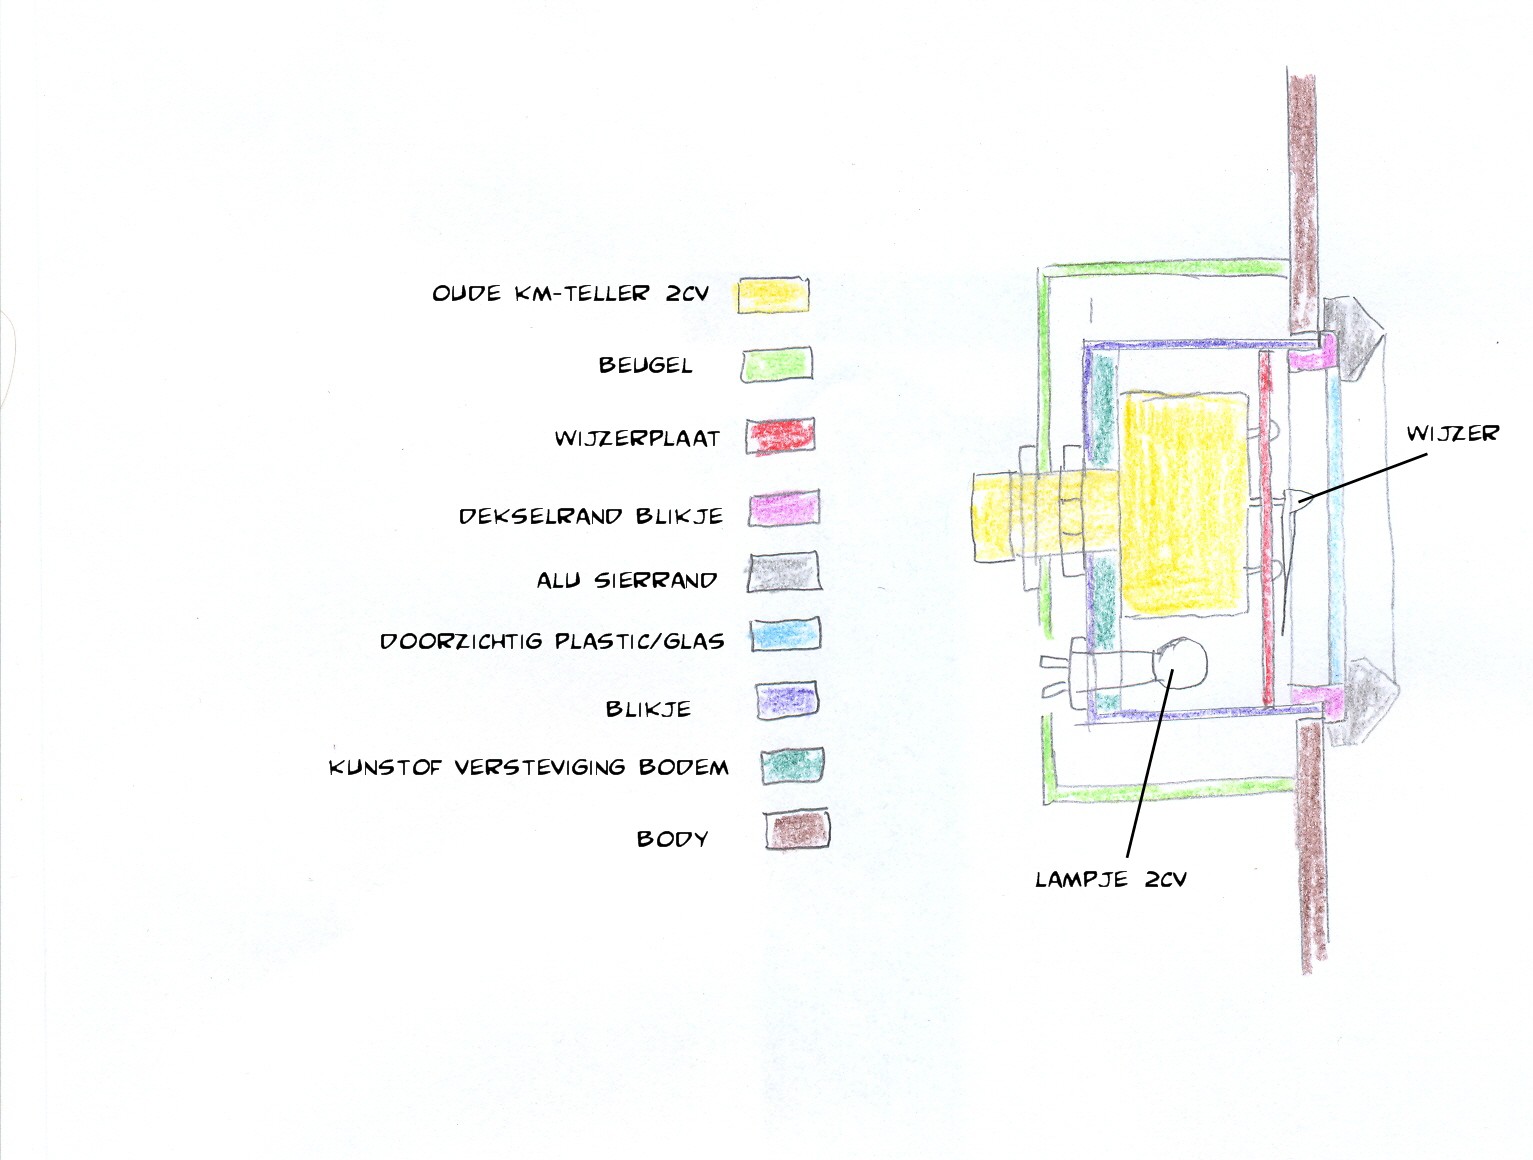 OUDE KM-TELLER 2CV
BEUGEL
WIJZERPLAAT
DEKSELRAND BLIKJE
ALU SIERRAND
DOORZICHTIG PLASTIC/GLAS
BLIKJE
KUNSTOF VERSTEVIGING BODEM
BODY
WIJZER
LAMPJE 2CV